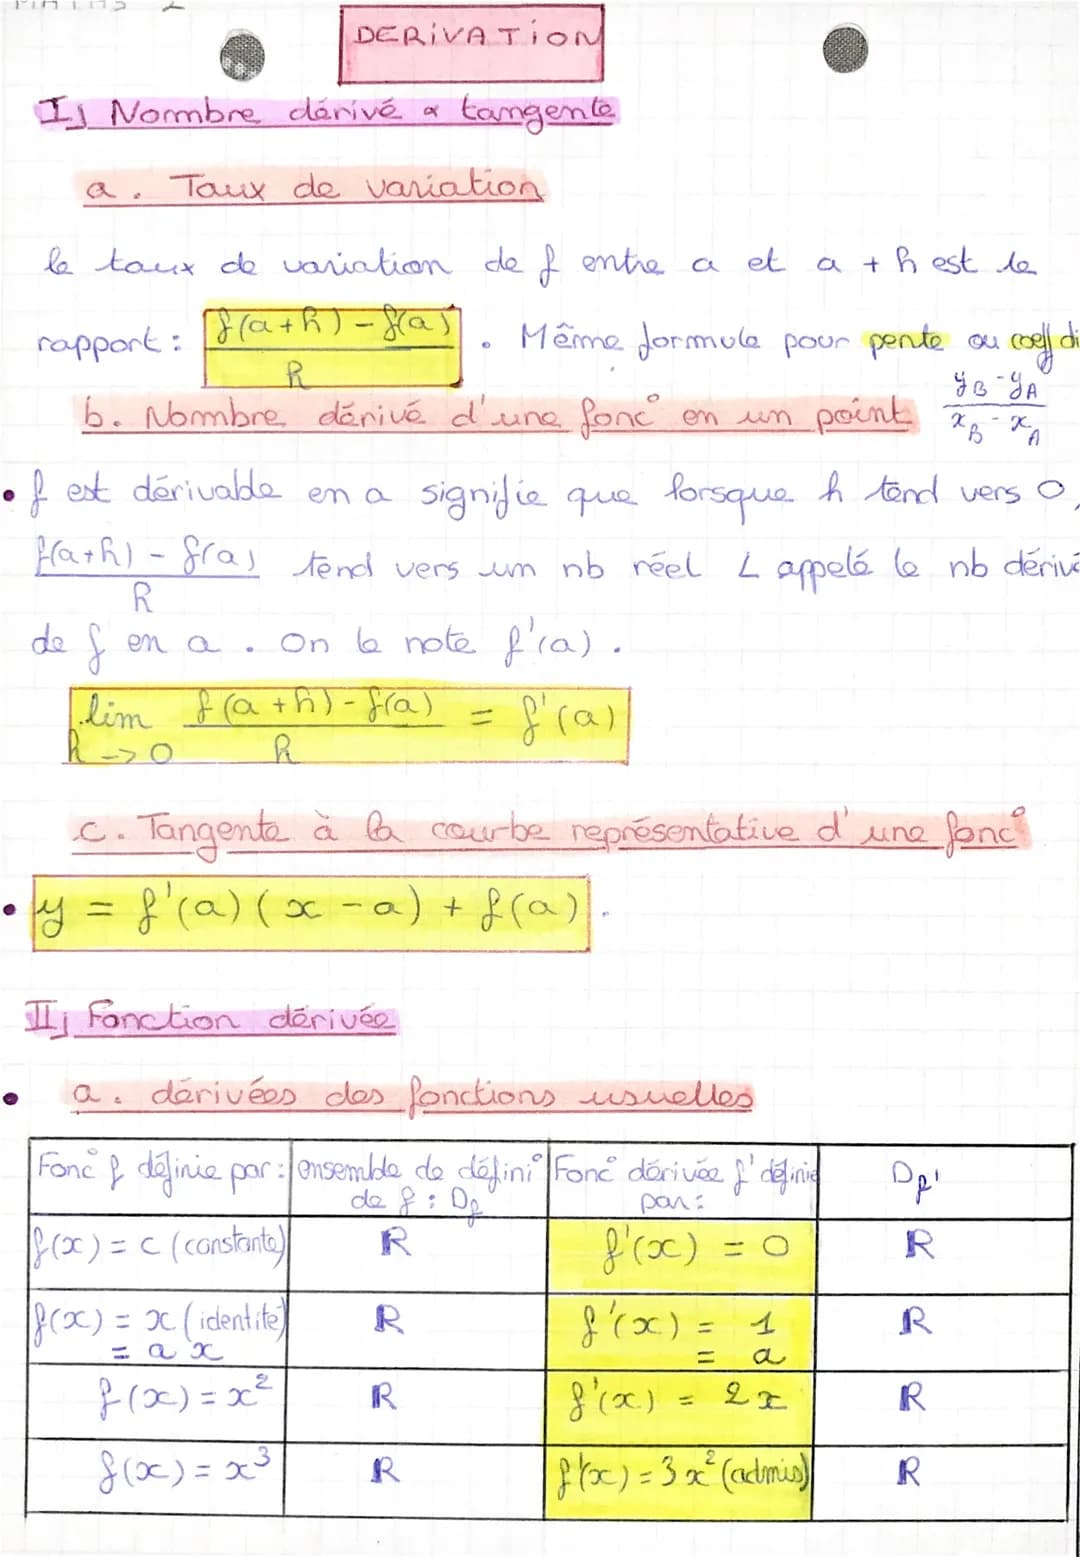 MATHS 2
DERIVATION
I) Nombre dérivé & tangente
a. Taux de variation
le taux de variation de f entre a et a + h est le
rapport : f(a+h) - f(a) / h . Même formule pour pente ou coeff di
b. Nombre dérivé d'une fonc° en un point yB - yA / xB - xA
• f est dérivable en a signifie que lorsque h tend vers 0,
f(a+h) - f(a) / h tend vers un nb réel L appelé le nb dérivé
de f en a . On le note f'(a) .
lim h -> 0 f(a+h) - f(a) / h = f'(a)
c. Tangente à la courbe représentative d'une fonc°
• y = f'(a) (x - a) + f(a) .
II) Fonction dérivée
• a. dérivées des fonctions usuelles
Fonc° f définie par : ensemble de défini° de f : Df Fonc° dérivée f' définie par : Df'
f(x) = c (constante) ℝ f'(x) = 0 ℝ
f(x) = x (identité) ℝ f'(x) = 1 ℝ
= a x = a
f(x) = x² ℝ f'(x) = 2x ℝ
f(x) = x³ ℝ f'(x) = 3x² (admis) ℝ